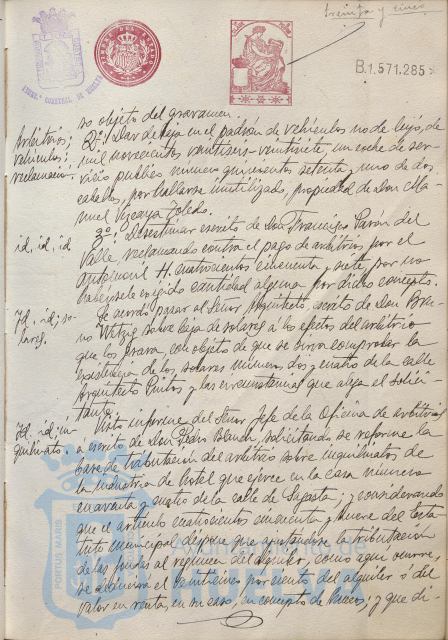 treinta y cinco
B.1.571.285
TIMBRE DEL ESTADO
Arbitrios;
vehículos;
reclamación.
so objeto del gravamen.
2º: Dar de baja en el padrón de vehículos no de lujo, de
mil novecientos veintiseis-veintisiete, un coche de ser-
vicio público número quinientos setenta, uno de dos
caballos, por hallarse inutilizado, propiedad de Don Ma-
nuel Vizcaya Toledo.
id, id, id
3º: Desestimar escrito de Don Francisco Garón del
Valle reclamando contra el pago de arbitrios por el
automóvil H. cuatrocientos cincuenta y siete, por no
habérsele exigido cantidad alguna por dicho concepto.
Id, id; so-
lares.
Se acordó pasar al Señor Arquitecto, escrito de Don Bru-
no Wetzig sobre baja de solares a los efectos del arbitrio
que los grava, con objeto de que se sirva comprobar la
existencia de los solares números dos y cuatro de la calle
Arquitecto Pinto y las circunstancias que alega el solici-
tante.
Id, id; in-
quilinato.
Visto informe del Señor Jefe de la Oficina de Arbitrios
a escrito de Don Pedro Blanch, solicitando se reforme la
base de tributación del arbitrio sobre inquilinatos de
la industria de hotel que ejerce en la casa número
cuarenta y cuatro de la calle de Sagasta; y considerando
que el artículo cuatrocientos cincuenta y nueve del Esta-
tuto Municipal dispone que ajustándose la tributación
de las fondas al régimen del alquiler, como aquí ocurre,
se deducirá el 50 por ciento del alquiler o del
valor en renta, en su caso, en concepto de
y que di-
PORTUS MARIS
Ayuntamiento de
HUELVA